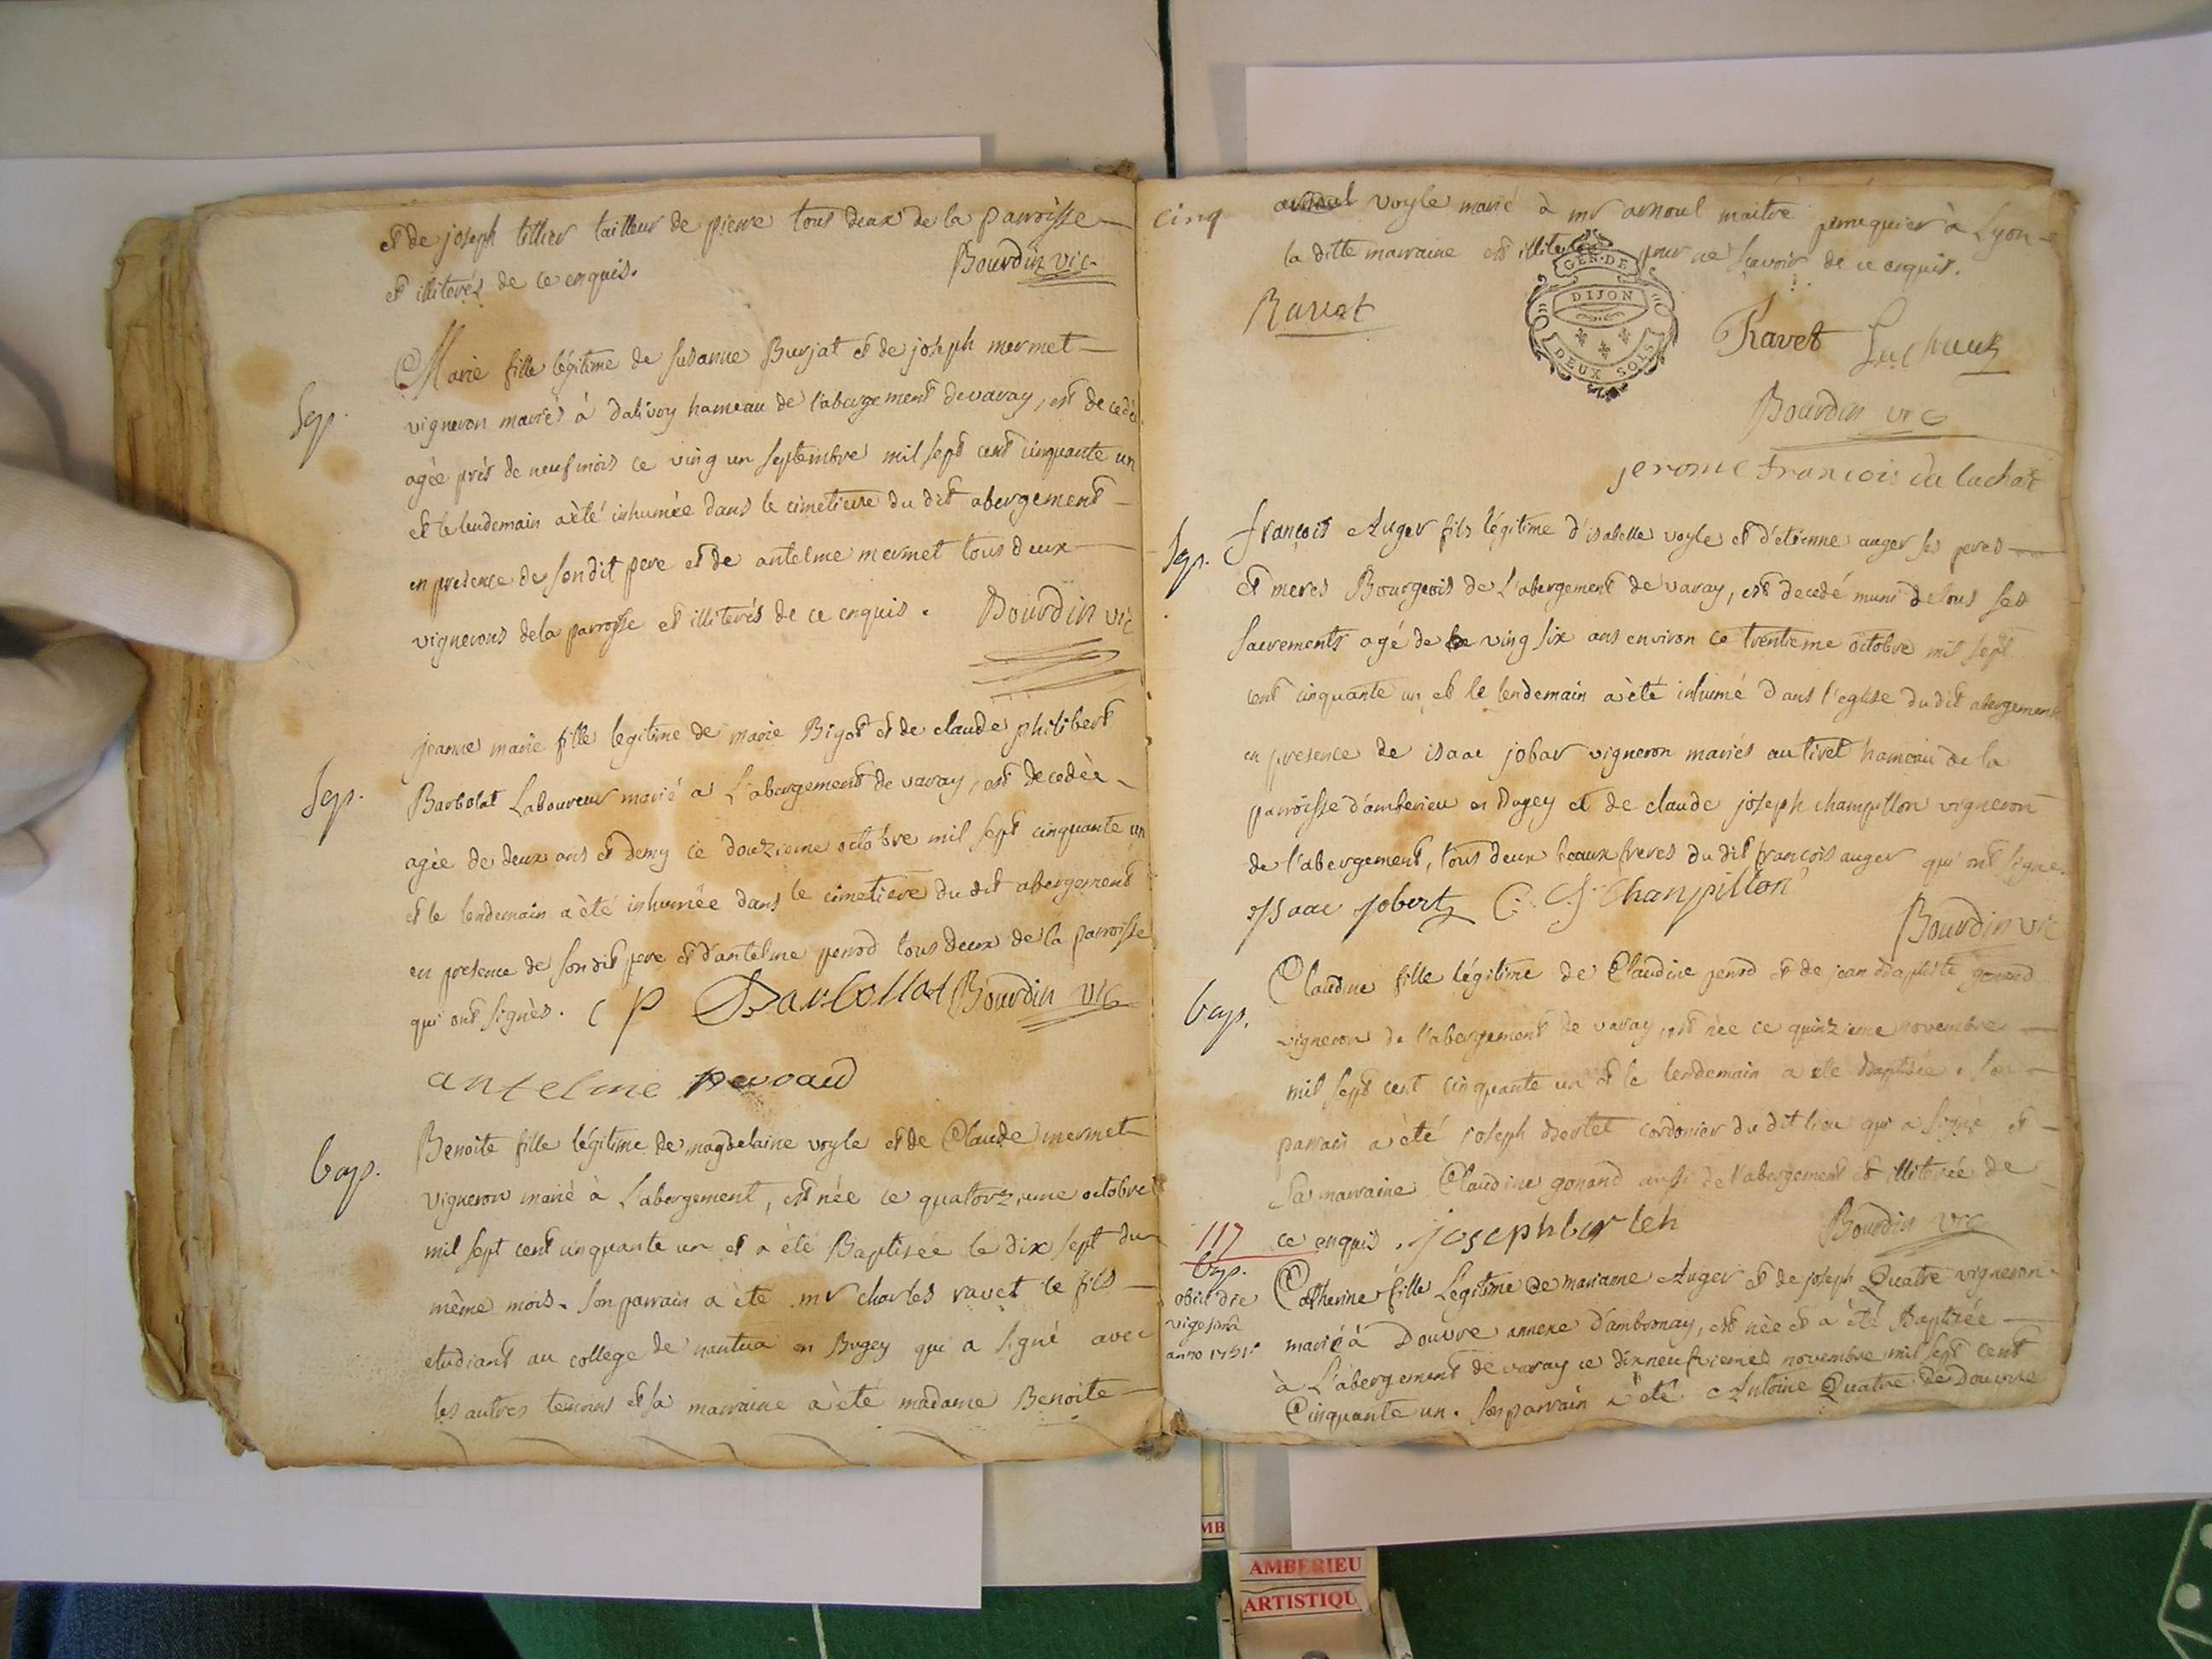 et de joseph tillier tailleur de pierre tous deux de la parroisse
et illiterés de ce enquis.
Bourdin vic
Sep.
Marie fille légitime de susanne Burjat et de joseph mermet
vigneron mariés à dalivoy hameau de l'abergement de varay, est decedée
agée près de neuf mois ce ving un septembre mil sept cent cinquante un
et le lendemain a été inhumée dans le cimetiere du dit abergement
en presence de son dit pere et de antelme mermet tous deux
vignerons de la parroisse et illiterés de ce enquis. Bourdin vic
Sep.
jeanne marie fille legitime de marie Bigot et de claude philibert
Barbolat Laboureur marié a L'abergement de varay, est decedée
agée de deux ans et demy ce douzieme octobre mil sept cinquante un
et le lendemain a été inhumée dans le cimetiere du dit abergement
en presence de son dit pere et d'antelme perrod tous deux de la parroisse
qui ont signés. C P Barbollat Bourdin vic
antelme perroud
bap.
Benoite fille légitime de magdelaine voyle et de Claude mermet
vigneron marié à L'abergement, est née ce quatorzieme octobre
mil sept cent cinquante un et a été Baptisée le dix sept du
même mois. son parrain a été mr charles ravet le fils
etudiant au college de nantua en Bugey qui a signé avec
les autres temoins et sa marraine a été madame Benoite
cinq
voyle marié à mr arnoul maitre perruquier à Lyon
la ditte marraine est illiterée pour ne sçavoir de ce enquis.
GEN. DE
DIJON
DEUX SOLS
Ravet
Ravet
Bourdin vic
jerome francois du lachat
Sep.
françois Auger fils légitime d'isabelle voyle et d'etienne auger ses peres
et meres Bourgeois de L'abergement de varay, est decedé muni de tous ses
sacrements agé de ving six ans environ ce trentieme octobre mil sept
cent cinquante un et le lendemain a été inhumé dans l'eglise du dit abergement
en presence de isaac jobar vigneron mariés au tiret hameau de la
parroisse d'amberieu en Bugey et de claude joseph champillon vigneron
de l'abergement, tous deux beaux freres du dit françois auger qui ont signe.
Isaac jobert C. J. Champillon
Bourdin vic
bap.
Claudine fille légitime de Claudine perrod et de jean Baptiste gonand
vigneron de l'abergement de varay, est née ce quinzieme novembre
mil sept cent cinquante un et le lendemain a ete Baptisée. son
parrain a été joseph Bertet cordonier du dit lieu qui a signe et
sa marraine Claudine gonand aussi de l'abergement et illiterée de
ce enquis. joseph berteh Bourdin vic
117
bap.
obiit die
vigesima
anno 1751.
Catherine fille Légitime de marianne Auger et de joseph Quatre vigneron
marié à Douvre annexe d'ambronay, est née et a été Baptisée
à L'abergement de varay ce dixneuvieme novembre mil sept cent
Cinquante un. son parrain a été Antoine Quatre de Douvre
AMBERIEU
ARTISTIQU